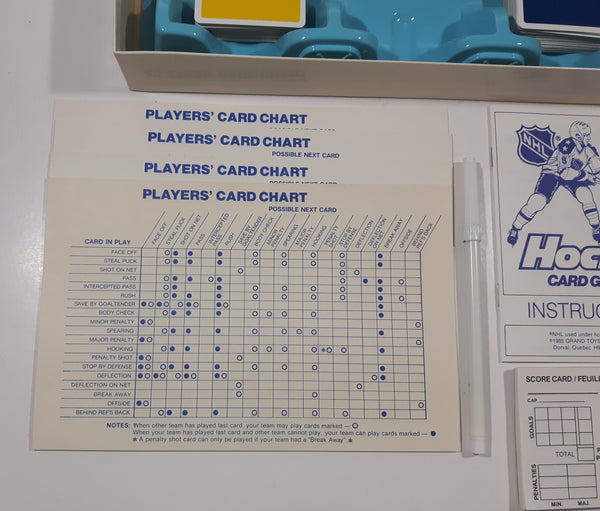 PLAYERS' CARD CHART
POSSIBLE NEXT CARD
PLAYERS' CARD CHART
POSSIBLE NEXT CARD
PLAYERS' CARD CHART
POSSIBLE NEXT CARD
PLAYERS' CARD CHART
POSSIBLE NEXT CARD
CARD IN PLAY
FACE OFF
STEAL PUCK
SHOT ON NET
PASS
INTERCEPTED PASS
RUSH
SAVE BY GOALTENDER
BODY CHECK
MINOR PENALTY
SPEARING
MAJOR PENALTY
HOOKING
PENALTY SHOT
STOP BY DEFENSE
DEFLECTION
DEFLECTION ON NET
BREAK AWAY
OFFSIDE
BEHIND REF'S BACK
FACE OFF
STEAL PUCK
SHOT ON NET
PASS
INTERCEPTED PASS
RUSH
SAVE BY GOALTENDER
BODY CHECK
MINOR PENALTY
SPEARING
MAJOR PENALTY
HOOKING
PENALTY SHOT
STOP BY DEFENSE
DEFLECTION
DEFLECTION ON NET
BREAK AWAY
OFFSIDE
BEHIND REF'S BACK
NOTES: When other team has played last card, your team may play cards marked — O
When your team has played last card and other team cannot play, your team can play cards marked — ●
* A penalty shot card can only be played if your team had a "Break Away" *
NHL
Hoc
CARD G
INSTRUC
®NHL used under lic
©1985 GRAND TOYS
Dorval, Quebec H9
SCORE CARD / FEUIL
CAP
GOALS
TOTAL
PENALTIES
MIN. MAJ.